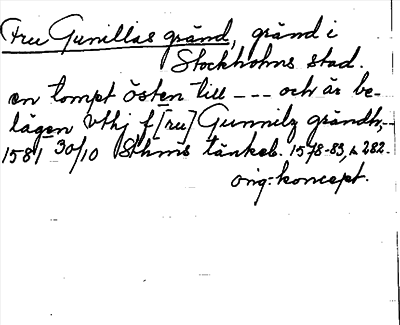 Fru Gunillas gränd, gränd i
Stockholms stad.
en tompt östen till --- och är be-
lägen vthj f[ru] Gunnilz grändh,--
1581 30/10 Sthms tänkeb. 1578-83, s. 282.
orig.-koncept.